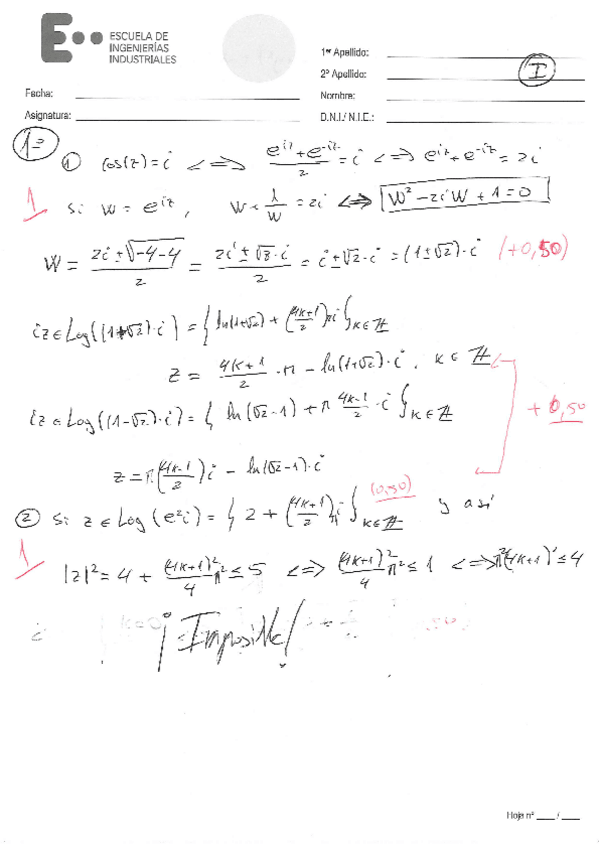 E•• ESCUELA DE
INGENIERÍAS
INDUSTRIALES
1er Apellido:
2º Apellido:
I
Fecha:
Nombre:
Asignatura:
D.N.I./ N.I.E.:
1º
① cos(z) = i <=> (e^{iz} + e^{-iz})/2 = i <=> e^{iz} + e^{-iz} = 2i
1 Si w = e^{iz}, w + 1/w = 2i <=> w² - 2iw + 1 = 0
w = (2i ± √(-4-4))/2 = (2i ± √8·i)/2 = i ± √2·i = (1±√2)·i (+0,50)
iz ∈ Log((1+√2)·i) = { ln(1+√2) + ((4k+1)/2)πi }_{k∈ℤ}
z = (4k+1)/2 · π - ln(1+√2)·i, k ∈ ℤ
+0,50
iz ∈ Log((1-√2)·i) = { ln(√2-1) + π (4k-1)/2 · i }_{k∈ℤ}
z = π((4k-1)/2)i - ln(√2-1)·i
(0,50)
② Si z ∈ Log(e²i) = { 2 + ((4k+1)/2)πi }_{k∈ℤ} y así
1
|z|² = 4 + ((4k+1)²/4)π² ≤ 5 <=> ((4k+1)²/4)π² ≤ 1 <=> π²(4k+1)² ≤ 4
¡Imposible!
Hoja nº ___ / ___